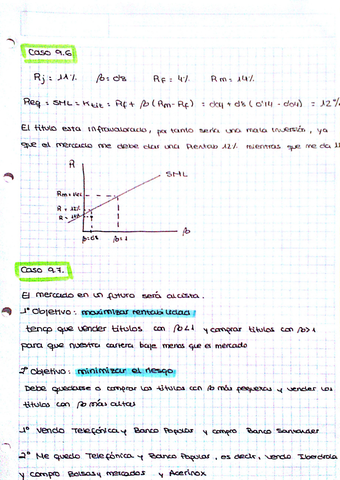 Caso 9.6
Rj = 11% β = 0'8 RF = 4% Rm = 14%
Req = SML = Keit = RF + β (Rm - RF) = 0'04 + 0'8 (0'14 - 0'04) = 12%
El título esta infravalorado, por tanto sería una mala inversión, ya
que el mercado me debe dar una Rentab 12% mientras que me da 11
R
SML
Rm = 14%
R = 12%
R = 11%
β = 0'8 β = 1 β
Caso 9.7.
El mercado en un futuro será alcista.
1º Objetivo: maximizar rentabilidad
tengo que vender títulos con β < 1 y comprar títulos con β > 1
para que nuestra cartera baje menos que el mercado
2º Objetivo: minimizar el riesgo
Debe quedarse o comprar los títulos con β más pequeños y vender los
títulos con β más altas
1º Vendo Telefónica y Banco Popular y compro Banco Santander
2º Me quedo Telefónica y Banco Popular, es decir, vendo Iberdrola
y compro Bolsas y mercados y Acerinox